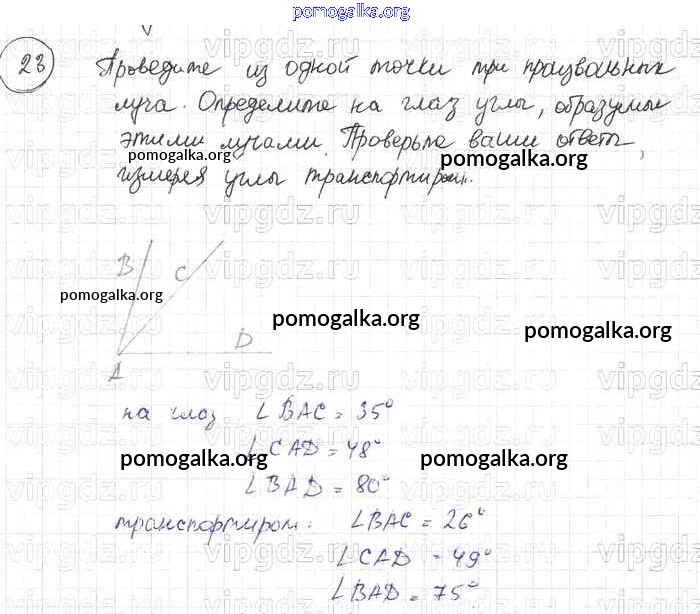 pomogalka.org
23 Проведите из одной точки три произвольных
луча. Определите на глаз углы, образуемые
этими лучами. Проверьте ваши ответы,
pomogalka.org pomogalka.org
измеряя углы транспортиром.
B C
pomogalka.org
pomogalka.org pomogalka.org
D
A
на глаз ∠BAC = 35°
∠CAD = 48°
pomogalka.org pomogalka.org
∠BAD = 80°
транспортиром: ∠BAC = 26°
∠CAD = 49°
∠BAD = 75°